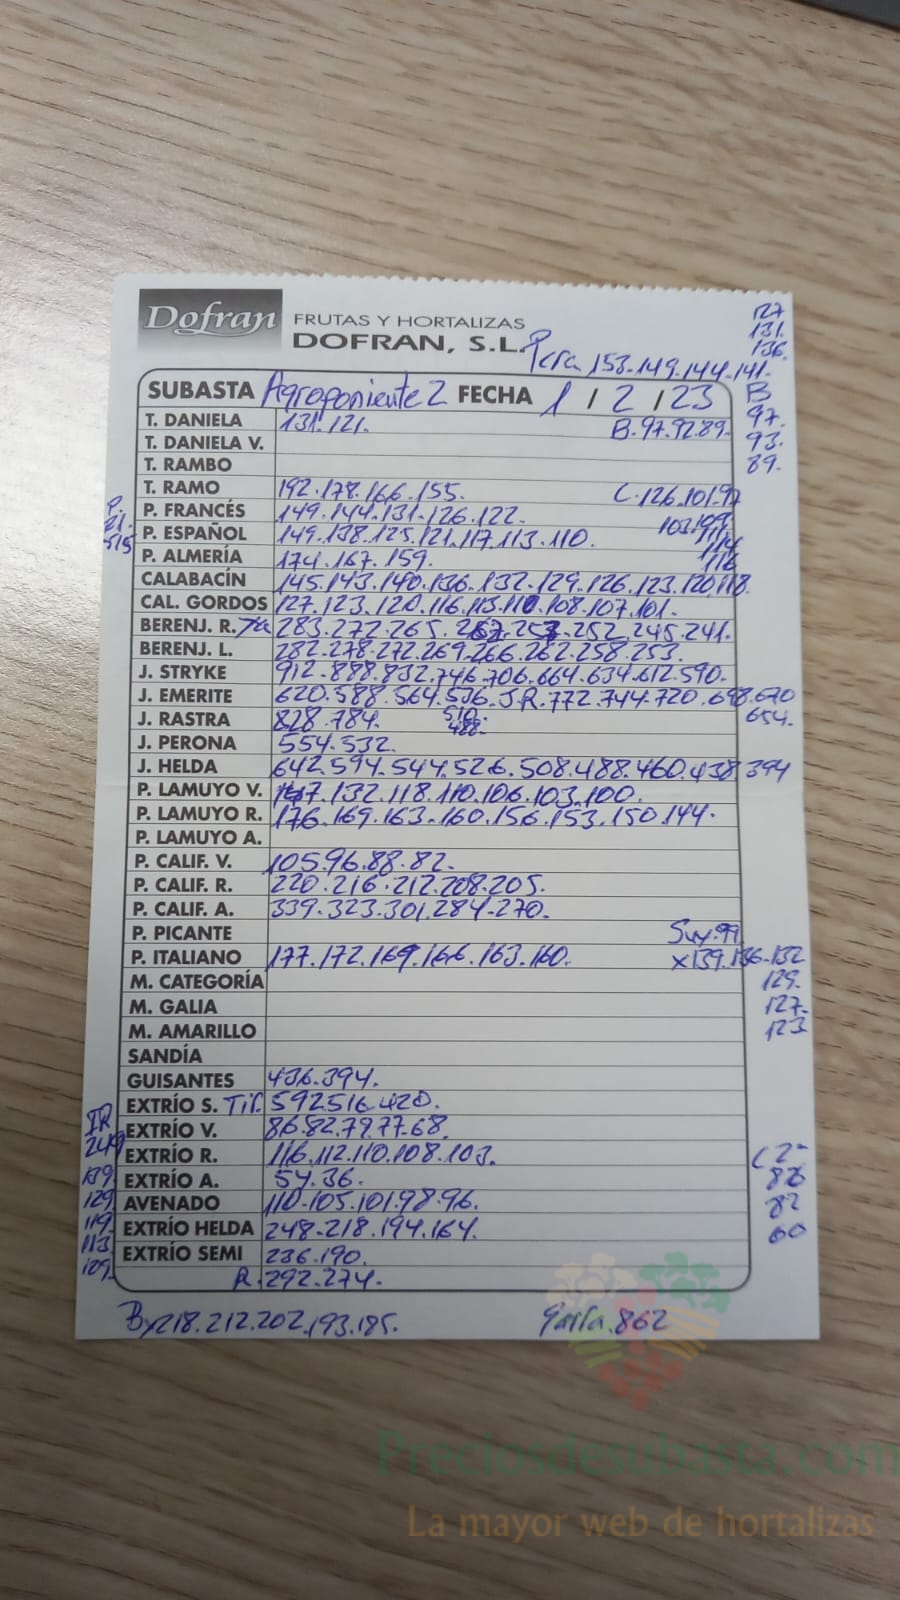 Dofran FRUTAS Y HORTALIZAS
DOFRAN, S.L.
Pera 153.149.144.141.
127
131.
136.
SUBASTA Agroponiente 2 FECHA 1 / 2 / 23
B
97.
93.
89.
T. DANIELA 131.121. B.97.92.89.
T. DANIELA V.
T. RAMBO
T. RAMO 192.178.166.155. C.126.101.97
P. FRANCÉS 149.144.131.126.122.
P. ESPAÑOL 149.138.125.121.117.113.110.
P. ALMERÍA 174.167.159.
CALABACÍN 145.143.140.136.132.129.126.123.120.118.
CAL. GORDOS 127.123.120.116.113.110.108.107.101.
BERENJ. R. 283.272.265. 252.245.241.
BERENJ. L. 282.278.272.269.266.262.258.253.
J. STRYKE 912.888.832.746.706.664.634.612.590.
J. EMERITE 620.588.564.536. J.R.772.744.720.698.670
654.
510.
488.
J. RASTRA 828.784.
J. PERONA 554.532.
J. HELDA 642.594.544.526.508.488.460.438.394
P. LAMUYO V. 147.132.118.110.106.103.100.
P. LAMUYO R. 176.169.163.160.156.153.150.144.
P. LAMUYO A.
P. CALIF. V. 105.96.88.82.
P. CALIF. R. 220.216.212.208.205.
P. CALIF. A. 339.323.301.284.270.
P. PICANTE
P. ITALIANO 177.172.169.166.163.160. x139.136.132
129.
127.
123
M. CATEGORÍA
M. GALIA
M. AMARILLO
SANDÍA
GUISANTES 436.394.
EXTRÍO S. Tir. 592.516.420.
EXTRÍO V. 86.82.79.77.68.
EXTRÍO R. 116.112.110.108.103.
EXTRÍO A. 54.36.
AVENADO 110.105.101.98.96.
EXTRÍO HELDA 248.218.194.164.
EXTRÍO SEMI 236.190.
R.292.274.
139.
129.
119.
113.
82
60
B 218.212.202.193.185. Garra.862
Preciosdesubasta.com
La mayor web de hortalizas